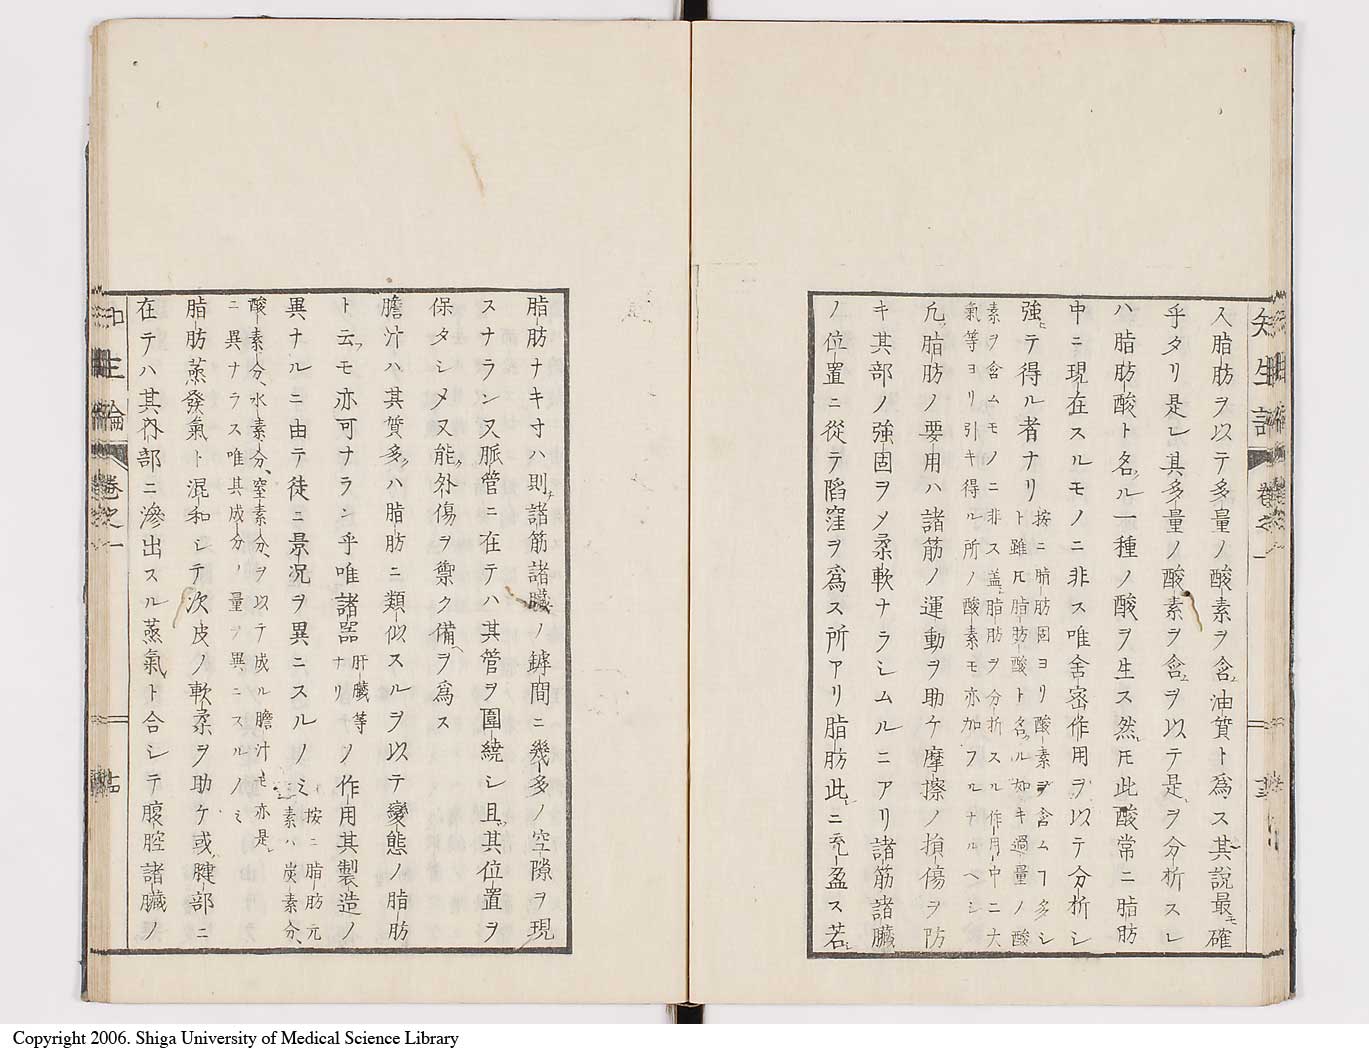 人脂肪ヲ以テ多量ノ酸素ヲ含ム油質ト為ス其説最モ確
乎タリ是レ其多量ノ酸素ヲ含ムヲ以テ是ヲ分析スレ
ハ脂肪酸ト名ツル一種ノ酸ヲ生ス然𪜈此酸常ニ脂肪
中ニ現在スルモノニ非ス唯舎密作用ヲ以テ分析シ
強ヒテ得ル者ナリ
按ニ脂肪固ヨリ酸素ヲ含ムヿ多シ
ト雖𪜈脂肪酸ト名ツル如キ過量ノ酸
素ヲ含ムモノニ非ス蓋シ脂肪ヲ分析スル作用中ニ大
氣等ヨリ引キ得ル所ノ酸素モ亦加フルナルヘシ
凡ソ脂肪ノ要用ハ諸筋ノ運動ヲ助ケ摩擦ノ損傷ヲ防
キ其部ノ強固ヲメ柔軟ナラシムルニアリ諸筋諸臓
ノ位置ニ從テ陷窪ヲ為ス所アリ脂肪此ニ充盈ス若シ
知生論 卷之一
脂肪ナキ寸ハ則チ諸筋諸臓ノ罅間ニ幾多ノ空隙ヲ現
スナラン又脈管ニ在テハ其管ヲ圍繞シ且ツ其位置ヲ
保タシメ又能ク外傷ヲ禦ク備ヘヲ為ス
膽汁ハ其質多クハ脂肪ニ類似スルヲ以テ變態ノ脂肪
ト云フモ亦可ナラン乎唯諸器
肝臓等
ナリ
ノ作用其製造ノ
異ナルニ由テ徒ニ景况ヲ異ニスルノミ
按ニ脂肪元
素ハ炭素分、
酸素分、水素分、窒素分、ヲ以テ成ル膽汁モ亦是レ
ニ異ナラス唯其成分ノ量ヲ異ニスルノミ
脂肪蒸發氣ト混和シテ次皮ノ軟柔ヲ助ケ或ハ腱部ニ
在テハ其内部ニ滲出スル蒸氣ト合シテ腹腔諸臓ノ
知生論 卷之一
Copyright 2006. Shiga University of Medical Science Library